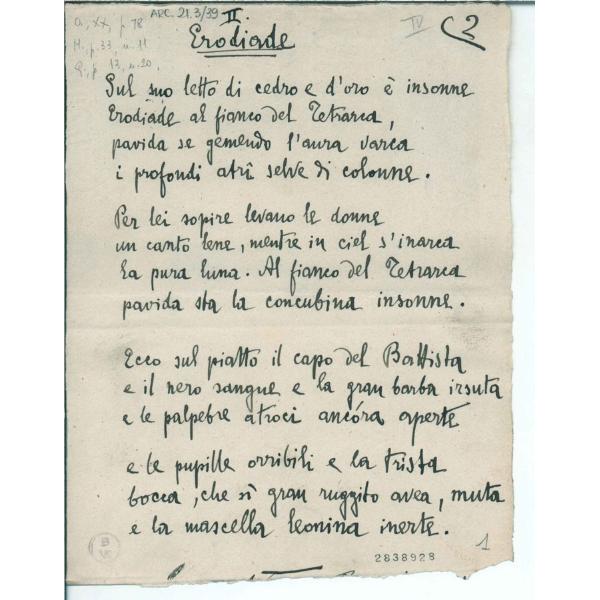 ARC. 21.3/39
a, XX, p 78
M. p. 33, n. 11
p. 13, n. 20,
II
IV
2
Erodiade
Sul suo letto di cedro e d'oro è insonne
Erodiade al fianco del Tetrarca,
pavida se gemendo l'aura varca
i profondi atrî selve di colonne.
Per lei sopire levano le donne
un canto lene, mentre in ciel s'inarca
la pura luna. Al fianco del Tetrarca
pavida sta la concubina insonne.
Ecco sul piatto il capo del Battista
e il nero sangue e la gran barba irsuta
e le palpebre atroci ancóra aperte
e le pupille orribili e la trista
bocca, che sì gran ruggito avea, muta
e la mascella leonina inerte.
2838928
1